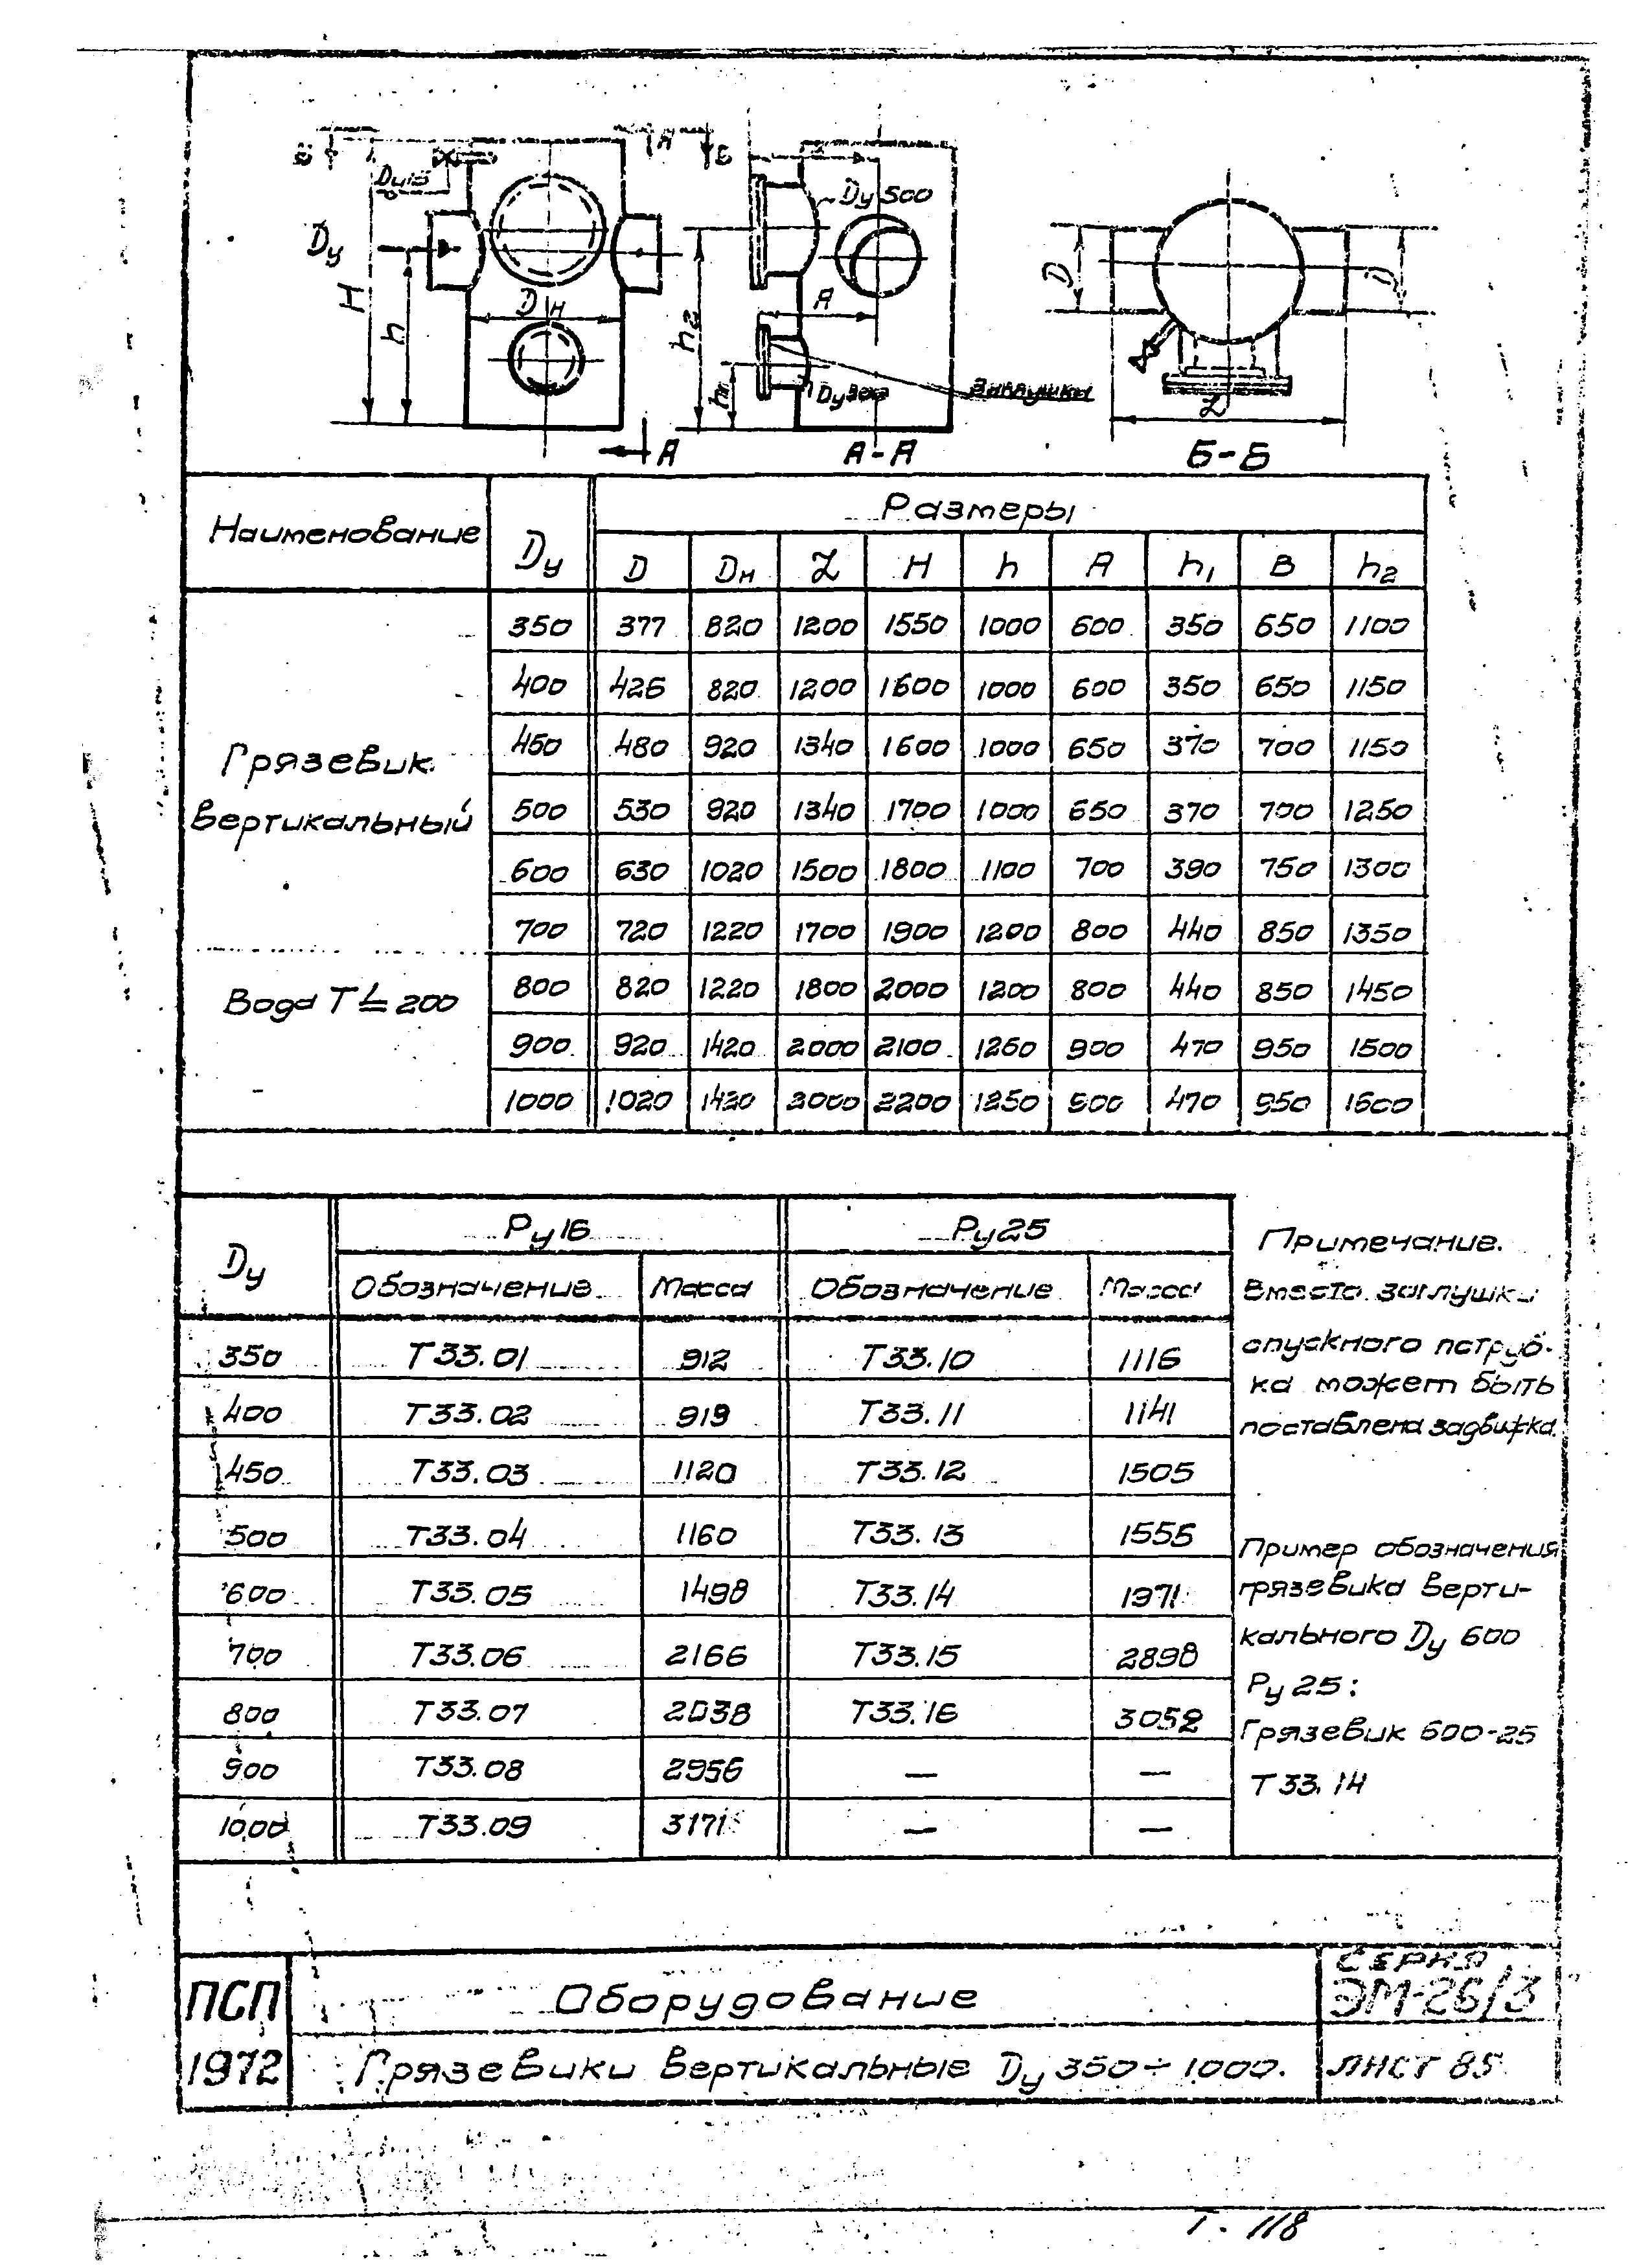 Б
А
Б
Dу15
Dу
H
h
Dн
А
Dу 500
h2
А
h1
Dу300
Заглушки
А-А
D
D
L
Б-Б
Наименование Dу Размеры
D Dн L H h A h1 B h2
350 377 820 1200 1550 1000 600 350 650 1100
400 426 820 1200 1600 1000 600 350 650 1150
450 480 920 1340 1600 1000 650 370 700 1150
Грязевик
500 530 920 1340 1700 1000 650 370 700 1250
вертикальный
600 630 1020 1500 1800 1100 700 390 750 1300
700 720 1220 1700 1900 1200 800 440 850 1350
Вода Т ≤ 200
800 820 1220 1800 2000 1200 800 440 850 1450
900 920 1420 2000 2100 1250 900 470 950 1500
1000 1020 1420 2000 2200 1250 900 470 950 1600
Dу Ру16 Ру25
Обозначение Масса Обозначение Масса
350 Т33.01 912 Т33.10 1116
400 Т33.02 919 Т33.11 1141
450 Т33.03 1120 Т33.12 1505
500 Т33.04 1160 Т33.13 1555
600 Т33.05 1498 Т33.14 1971
700 Т33.06 2166 Т33.15 2898
800 Т33.07 2038 Т33.16 3052
900 Т33.08 2956 — —
1000 Т33.09 3171 — —
Примечание.
Вместо заглушки
спускного патруб-
ка может быть
поставлена задвижка.
Пример обозначения
грязевика верти-
кального Dу 600
Ру 25:
Грязевик 600-25
Т 33.14
ПСП
1972
Оборудование
Грязевики вертикальные Dу 350÷1000.
СЕРИЯ
ЭМ-26/3
ЛИСТ 85
Т. 118